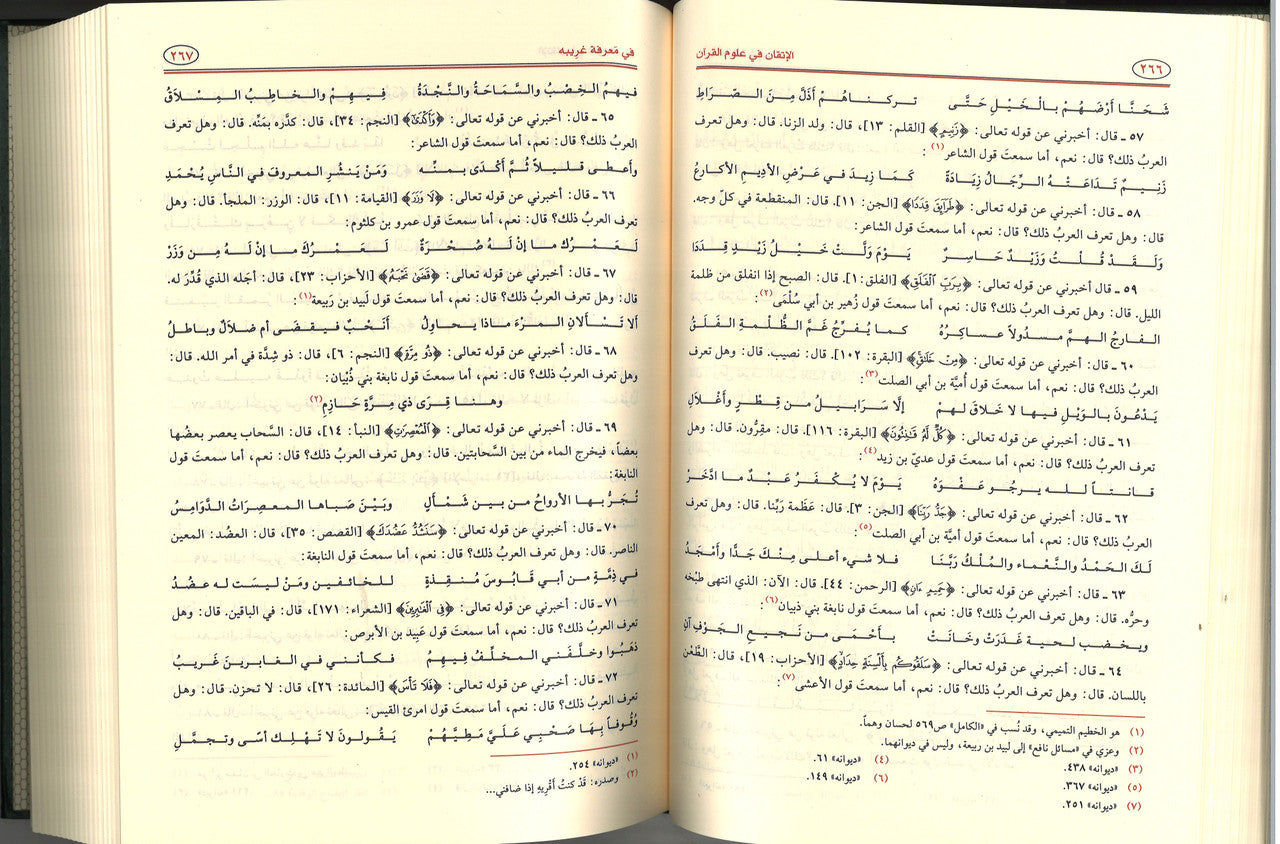 ٢٦٦
الإتقان في علوم القرآن
شَحَنَّا أَرْضَهُمْ بِالْخَيْلِ حَتَّى تركناهُمْ أَذَلَّ مِنَ الصِّرَاطِ
٥٧ ـ قال: أخبرني عن قوله تعالى: ﴿زَنِيمٍ﴾ [القلم: ١٣]، قال: ولد الزنا. قال: وهل تعرف
العربُ ذلك؟ قال: نعم، أما سمعتَ قول الشاعر(١):
زَنِيمٌ تَدَاعَتْهُ الرِّجَالُ زِيَادَةً كَمَا زِيدَ في عَرْضِ الأدِيمِ الأكَارِعُ
٥٨ ـ قال: أخبرني عن قوله تعالى: ﴿طَرَآئِقَ قِدَدًا﴾ [الجن: ١١]. قال: المنقطعة في كلّ وجه.
قال: وهل تعرف العربُ ذلك؟ قال: نعم، أما سمعتَ قول الشاعر:
وَلَقَدْ قُلْتُ وَزَيْدٌ حَاسِرٌ يَوْمَ وَلَّتْ خَيْلُ زَيْدٍ قِدَدَا
٥٩ ـ قال أخبرني عن قوله تعالى: ﴿بِرَبِّ ٱلْفَلَقِ﴾ [الفلق: ١]. قال: الصبح إذا انفلق من ظلمة
الليل. قال: وهل تعرف العربُ ذلك؟ قال: نعم، أما سمعتَ قول زُهير بن أبي سُلْمَى(٢):
الفارجُ الهمَّ مسدُولاً عساكِرُهُ كما يُفرِّجُ غَمَّ الظُّلْمةِ الفَلَقُ
٦٠ ـ قال: أخبرني عن قوله تعالى: ﴿مِنْ خَلَاقٍ﴾ [البقرة: ١٠٢]. قال: نصيب. قال: وهل تعرف
العربُ ذلك؟ قال: نعم، أما سمعتَ قول أُميَّة بن أبي الصلت(٣):
يَدْعُونَ بِالوَيْلِ فِيها لا خَلاقَ لهمْ إلَّا سَرَابِيلُ من قِطْرٍ وأَغْلَالِ
٦١ ـ قال: أخبرني عن قوله تعالى: ﴿كُلٌّ لَّهُۥ قَـٰنِتُونَ﴾ [البقرة: ١١٦]. قال: مقِرُّون. قال: وهل
تعرف العربُ ذلك؟ قال: نعم، أما سمعتَ قول عديّ بن زيد(٤):
قانتاً للهِ يرجُو عَفْوَهُ يَوْمَ لا يُكْفَرُ عَبْدٌ ما ادَّخَرْ
٦٢ ـ قال: أخبرني عن قوله تعالى: ﴿جَدُّ رَبِّنَا﴾ [الجن: ٣]. قال: عَظَمة ربّنا. قال: وهل تعرف
العربُ ذلك؟ قال: نعم، أما سمعتَ قول أميَّة بن أبي الصلت(٥):
لَكَ الحَمْدُ والنَّعْماء والمُلْكُ رَبَّنَا فلا شيء أعلى مِنْكَ جَدًّا وأَمْجَدُ
٦٣ ـ قال: أخبرني عن قوله تعالى: ﴿حَمِيمٍ ءَانٍ﴾ [الرحمن: ٤٤]. قال: الآن: الذي انتهى طبْخه
وحرُّه. قال: وهل تعرف العربُ ذلك؟ قال: نعم، أما سمعتَ قول نابغة بني ذبيان(٦):
ويخضب لحية غَدَرَتْ وخَانَتْ بأَحْمَى من نَجيعِ الجَوْفِ آنِ
٦٤ ـ قال: أخبرني عن قوله تعالى: ﴿سَلَقُوكُم بِأَلْسِنَةٍ حِدَادٍ﴾ [الأحزاب: ١٩]، قال: الطَّعْن
باللسان. قال: وهل تعرف العربُ ذلك؟ قال: نعم، أما سمعتَ قول الأعشى(٧):
(١) هو الخطيم التميمي، وقد نُسب في «الكامل» ص٥٦٩ لحسان وهماً.
(٢) وعزي في «مسائل نافع» إلى لبيد بن ربيعة، وليس في ديوانهما.
(٣) «ديوانه» ٤٣٨. (٤) «ديوانه» ٦١.
(٥) «ديوانه» ٣٦٧. (٦) «ديوانه» ١٤٩.
(٧) «ديوانه» ٢٥١.
في مَعرفة غَريبه
٢٦٧
فيهمُ الخِصْبُ والسَّمَاحَةُ والنَّجْدَةُ فِيهِمْ والخاطِبُ المِسْلَاقُ
٦٥ ـ قال: أخبرني عن قوله تعالى: ﴿وَأَكْدَىٰٓ﴾ [النجم: ٣٤]، قال: كدَّره بمَنِّه. قال: وهل تعرف
العربُ ذلك؟ قال: نعم، أما سمعتَ قول الشاعر:
وأَعطى قليلاً ثُمَّ أَكْدَى بمنِّه وَمَنْ يَنشُرِ المعروفَ في النَّاسِ يُحْمَدِ
٦٦ ـ قال: أخبرني عن قوله تعالى: ﴿لَا وَزَرَ﴾ [القيامة: ١١]، قال: الوزر: الملجأ. قال: وهل
تعرف العربُ ذلك؟ قال: نعم، أما سمعتَ قول عمرو بن كلثوم:
لَعمْرُك ما إنْ لَهُ صُخْرَةٌ لَعَمْرُكَ ما إنْ لَهُ مِن وَزَرْ
٦٧ ـ قال: أخبرني عن قوله تعالى: ﴿قَضَىٰ نَحْبَهُۥ﴾ [الأحزاب: ٢٣]، قال: أجَله الذي قُدِّر له.
قال: وهل تعرف العربُ ذلك؟ قال: نعم، أما سمعتَ قول لَبيد بن رَبيعة(١):
ألا تَسْألانِ المرْءَ ماذا يحاوِلُ أَنَحْبٌ فيقضَى أم ضلالٌ وباطلُ
٦٨ ـ قال: أخبرني عن قوله تعالى: ﴿ذُو مِرَّةٍ﴾ [النجم: ٦]، قال: ذو شِدَّة في أمر الله. قال:
وهل تعرف العربُ ذلك؟ قال: نعم، أما سمعتَ قول نابغة بني ذُبْيان:
وهـا قِرَى ذي مِرَّةٍ حَازِمِ(٢)
٦٩ ـ قال: أخبرني عن قوله تعالى: ﴿ٱلْمُعْصِرَٰتِ﴾ [النبأ: ١٤]، قال: السَّحاب يعصر بعضُها
بعضاً، فيخرج الماء من بين السَّحابتين. قال: وهل تعرف العربُ ذلك؟ قال: نعم، أما سمعتَ قول
النابغة:
تُجَرُّ بها الأرواحُ من بين شَمْألٍ وبَيْنَ صَباها المعصِرَاتُ الدَّوَامِسُ
٧٠ ـ قال: أخبرني عن قوله تعالى: ﴿سَنَشُدُّ عَضُدَكَ﴾ [القصص: ٣٥]، قال: العضُد: المعين
الناصر. قال: وهل تعرف العربُ ذلك؟ قال: نعم، أما سمعتَ قول النابغة:
في ذِمَّةٍ من أبي قَابُوسَ مُنقِذةٍ للخائفين ومَنْ ليست له عضُدُ
٧١ ـ قال: أخبرني عن قوله تعالى: ﴿فِى ٱلْغَٰبِرِينَ﴾ [الشعراء: ١٧١]، قال: في الباقين. قال: وهل
تعرف العربُ ذلك؟ قال: نعم، أما سمعتَ قول عَبِيد بن الأبرص:
ذهَبُوا وخلَّفني المخلِّفُ فِيهمُ فكأنني في الغابرينَ غَريبُ
٧٢ ـ قال: أخبرني عن قوله تعالى: ﴿فَلَا تَأْسَ﴾ [المائدة: ٢٦]، قال: لا تحزن. قال: وهل
تعرف العربُ ذلك؟ قال: نعم، أما سمعتَ قول امرئ القيس:
وُقُوفاً بِهَا صَحْبِي عَلَيَّ مَطِيَّهُمْ يَقُولونَ لا تَهْلِك أسًى وتجمَّلِ
(١) «ديوانه» ٢٥٤.
(٢) وصدره: قَدْ كنتُ أقْرِيهِ إذا ضافني...